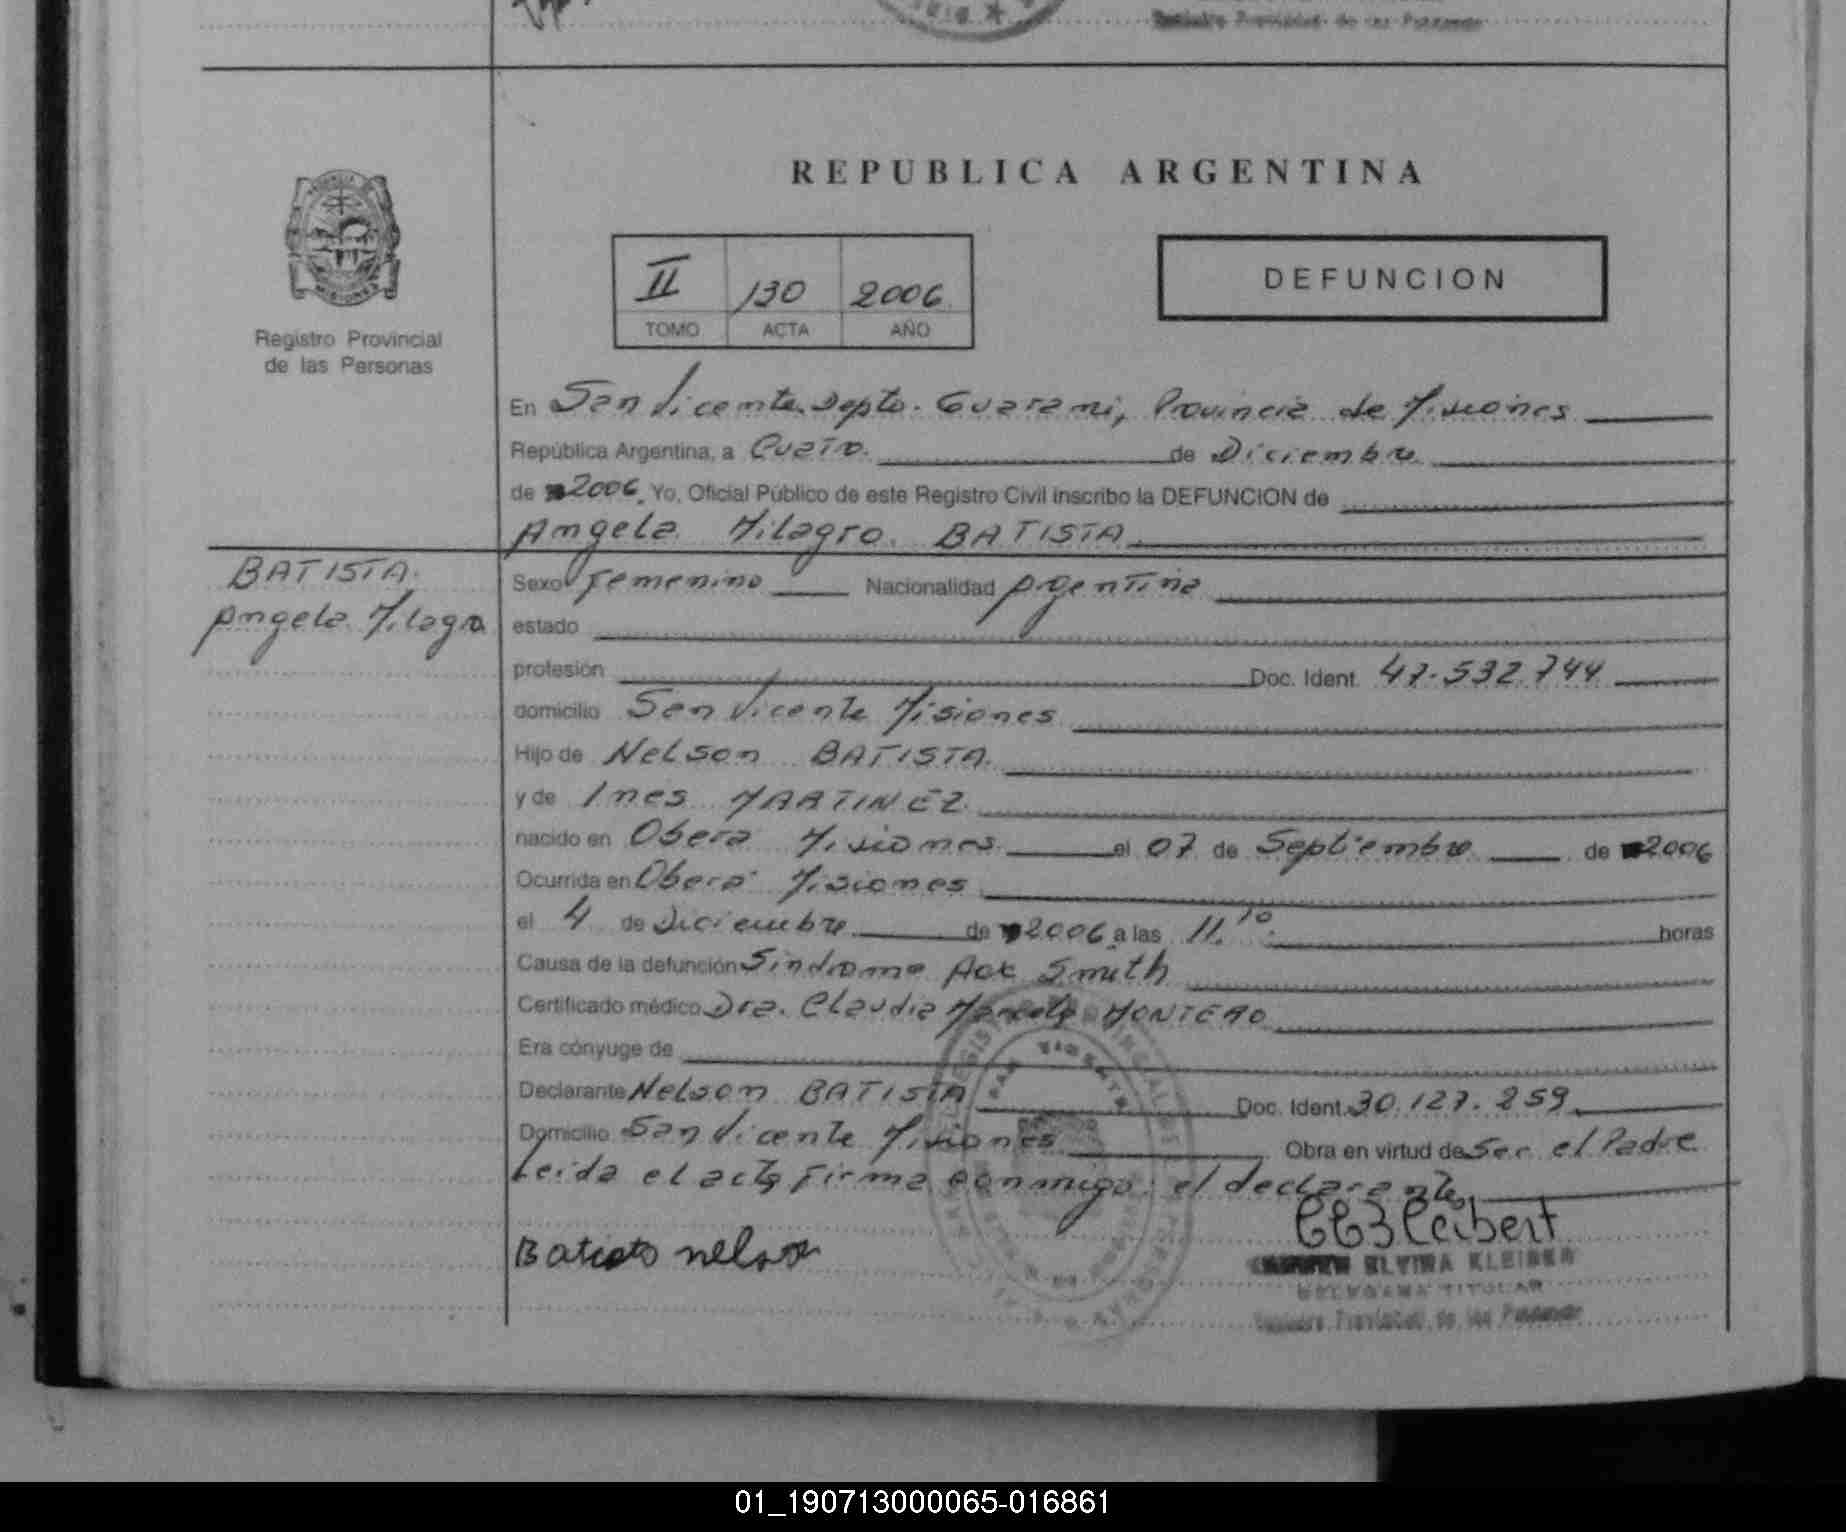 REPUBLICA ARGENTINA
PROVINCIA DE
MISIONES
Registro Provincial
de las Personas
II 130 2006
TOMO ACTA AÑO
DEFUNCION
En San Vicente Depto. Guarani, Provincia de Misiones
República Argentina, a Cuatro. de Diciembre
de 2006. Yo, Oficial Público de este Registro Civil inscribo la DEFUNCION de
Angela Milagro BATISTA
BATISTA
Angela Milagro
Sexo Femenino Nacionalidad Argentina
estado
profesión Doc. Ident. 47.532.744
domicilio San Vicente Misiones
Hijo de Nelson BATISTA
y de Ines MARTINEZ
nacido en Oberá Misiones el 07 de Septiembre de 2006
Ocurrida en Oberá Misiones
el 4 de Diciembre de 2006 a las 11.10 horas
Causa de la defunción Sindrome Smith
Certificado médico Dra. Claudia MONTERO
Era cónyuge de
Declarante Nelson BATISTA Doc. Ident. 30.127.259
Domicilio San Vicente Misiones Obra en virtud de Ser el Padre
Leida el acta firma conmigo el declarante
Batista nelson
ELVIRA KLEIBER
TITULAR
Registro Provincial de las Personas
01_190713000065-016861